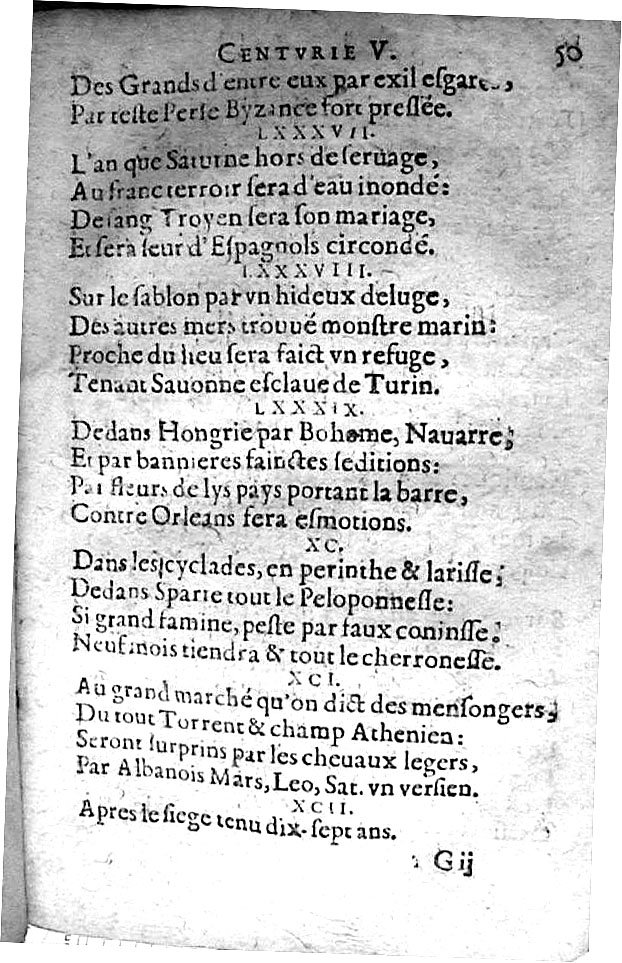 CENTVRIE V. 50
Des Grands d'entre eux par exil eſgare,
Par teſte Perſe Byzance fort preſſée.
LXXXVII.
L'an que Saturne hors de ſeruage,
Au franc terroir ſera d'eau inondé:
De ſang Troyen ſera ſon mariage,
Et ſera ſeur d'Eſpagnols circondé.
LXXXVIII.
Sur le ſablon par vn hideux deluge,
Des autres mers trouué monſtre marin:
Proche du lieu ſera faict vn refuge,
Tenant Sauonne eſclaue de Turin.
LXXXIX.
Dedans Hongrie par Boheme, Nauarre,
Et par bannieres fainctes ſeditions:
Par fleurs de lys pays portant la barre,
Contre Orleans fera eſmotions.
XC.
Dans les cyclades, en perinthe & lariſſe,
Dedans Sparte tout le Peloponneſſe:
Si grand famine, peſte par faux coninſſe,
Neuf mois tiendra & tout le cherroneſſe.
XCI.
Au grand marché qu'on dict des menſongers,
Du tout Torrent & champ Athenien:
Seront ſurprins par les cheuaux legers,
Par Albanois Mars, Leo, Sat. vn verſien.
XCII.
Apres le ſiege tenu dix-ſept ans.
G ij